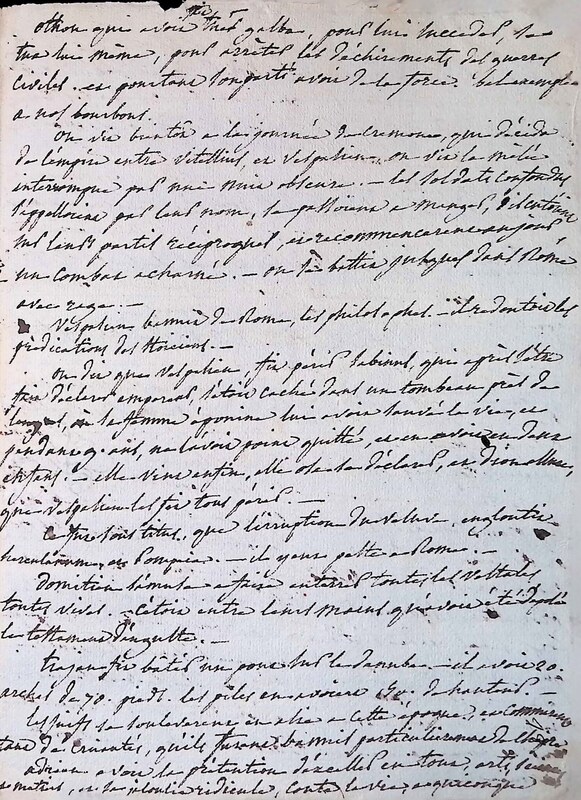 othon qui avoit fait tuer galba, pour lui succeder, se
tua lui même, pour arrêter les déchirements des guerres
civiles. et pourtant son parti avoit de la force. bel exemple
a nos bourbons.
On vit bientôt a la journée de Cremone, qui décida
de l'empire entre vitellius, et vespasien. on vit la mêlée
interrompue par une nuit obscure. - les soldats confondus
s'appelloient par leur nom, se passoient a manger, discutoient
sur leurs partis réciproques, et recommencerent au jour
un combat acharné. - on se battit jusques dans Rome
avec rage. -
Vespasien bannit de Rome, les philosophes. - il redoutoit les
prédications des stoiciens. -
On dit que vespasien, fit périr sabinus, que après s'être
fait déclarer empereur, s'étoit caché dans un tombeau près de
langres, où sa femme éponine lui avoit sauvé la vie, et
pendant 9. ans, ne l'avoit point quitté, et en avoit eu deux
enfans. - elle vint enfin, elle osa se déclarer, et dion assure,
que vespasien les fit tous périr. -
Ce fut sous titus, que l'érruption du vésuve, engloutit
herculanum, et Pompéia. - il y eut peste a Rome. -
Domitien s'amusa a faire enterrer toutes les vestales
toutes vives. - C'étoit entre leurs mains qu'avoit été déposé
le testament d'auguste. -
trajan fit bâtir un pont sur le danube. - il avoit 20.
arches de 70. pieds. les piles en avoient 150. de hauteur. -
les juifs se souleverent en asie a cette époque, et commirent
tant de cruautés, qu'ils furent bannis particulierement de Chypre
adrien avoit la prétention d'exceller en tout, arts,
et metiers, et sa jalousie ridicule, couta la vie a quiconque